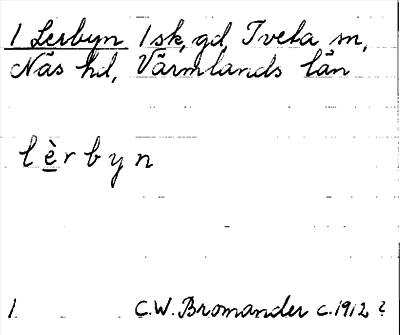 1 Lerbyn 1 sk, gd, Tveta sn,
Näs hd, Värmlands län
lèrbyn
1. C.W. Bromander c. 1912 ?